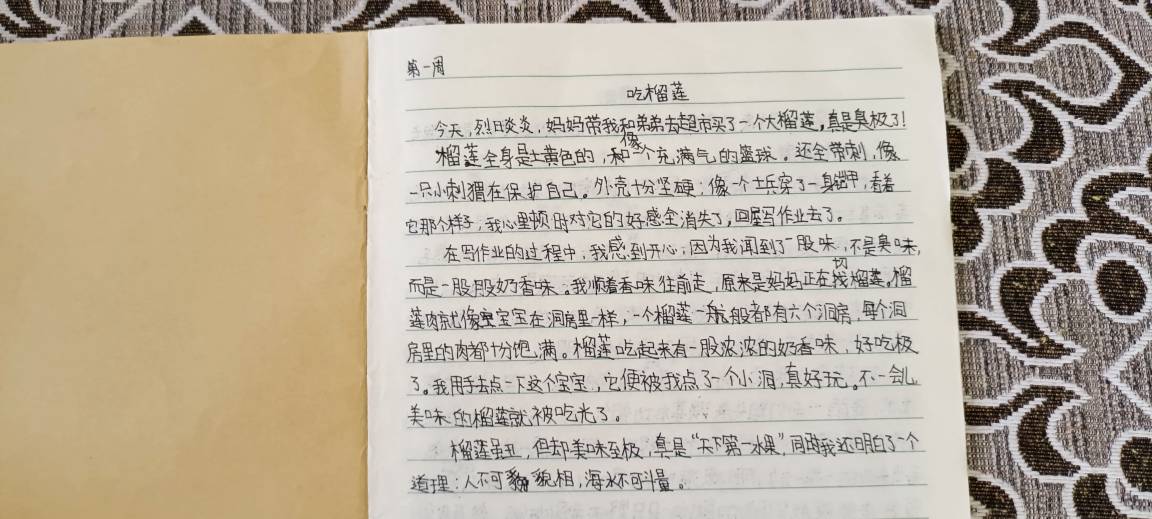 第一周
吃榴莲
今天,烈日炎炎,妈妈带我和弟弟去超市买了一个大榴莲,真是臭极了!
榴莲全身是土黄色的,像个充满气的篮球。还全带刺,像
一只小刺猬在保护自己。外壳十分坚硬;像一个士兵穿了一身铠甲,看着
它那个样子,我心里顿时对它的好感全消失了,回屋写作业去了。
在写作业的过程中,我感到开心,因为我闻到了一股味,不是臭味,
而是一股股奶香味。我顺着香味往前走,原来是妈妈正在切榴莲。榴
莲肉就像宝宝在洞房里一样,一个榴莲一般都有六个洞房,每个洞
房里的肉都十分饱满。榴莲吃起来有一股浓浓的奶香味,好吃极
了。我用手去点一下这个宝宝,它便被我点了一个小洞,真好玩。不一会儿
美味的榴莲就被吃光了。
榴莲虽丑,但却美味至极,真是“天下第一水果”同时我还明白了一个
道理:人不可貌相,海水不可斗量。